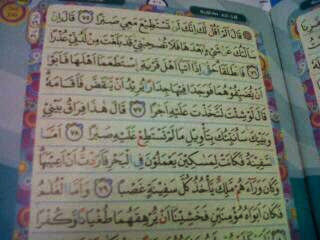 قَالَ أَلَمْ أَقُل لَّكَ إِنَّكَ لَن تَسْتَطِيعَ مَعِيَ صَبْرًا ٧٥ قَالَ إِن
سَأَلْتُكَ عَن شَيْءٍ بَعْدَهَا فَلَا تُصَاحِبْنِي قَدْ بَلَغْتَ مِن لَّدُنِّي عُذْرًا
٧٦ فَانطَلَقَا حَتَّىٰ إِذَا أَتَيَا أَهْلَ قَرْيَةٍ اسْتَطْعَمَا أَهْلَهَا فَأَبَوْا
أَن يُضَيِّفُوهُمَا فَوَجَدَا فِيهَا جِدَارًا يُرِيدُ أَن يَنقَضَّ فَأَقَامَهُ
قَالَ لَوْ شِئْتَ لَتَّخَذْتَ عَلَيْهِ أَجْرًا ٧٧ قَالَ هَٰذَا فِرَاقُ بَيْنِي
وَبَيْنِكَ سَأُنَبِّئُكَ بِتَأْوِيلِ مَا لَمْ تَسْتَطِع عَّلَيْهِ صَبْرًا ٧٨ أَمَّا
السَّفِينَةُ فَكَانَتْ لِمَسَاكِينَ يَعْمَلُونَ فِي الْبَحْرِ فَأَرَدتُّ أَنْ أَعِيبَهَا
وَكَانَ وَرَاءَهُم مَّلِكٌ يَأْخُذُ كُلَّ سَفِينَةٍ غَصْبًا ٧٩ وَأَمَّا الْغُلَامُ
فَكَانَ أَبَوَاهُ مُؤْمِنَيْنِ فَخَشِينَا أَن يُرْهِقَهُمَا طُغْيَانًا وَكُفْرًا